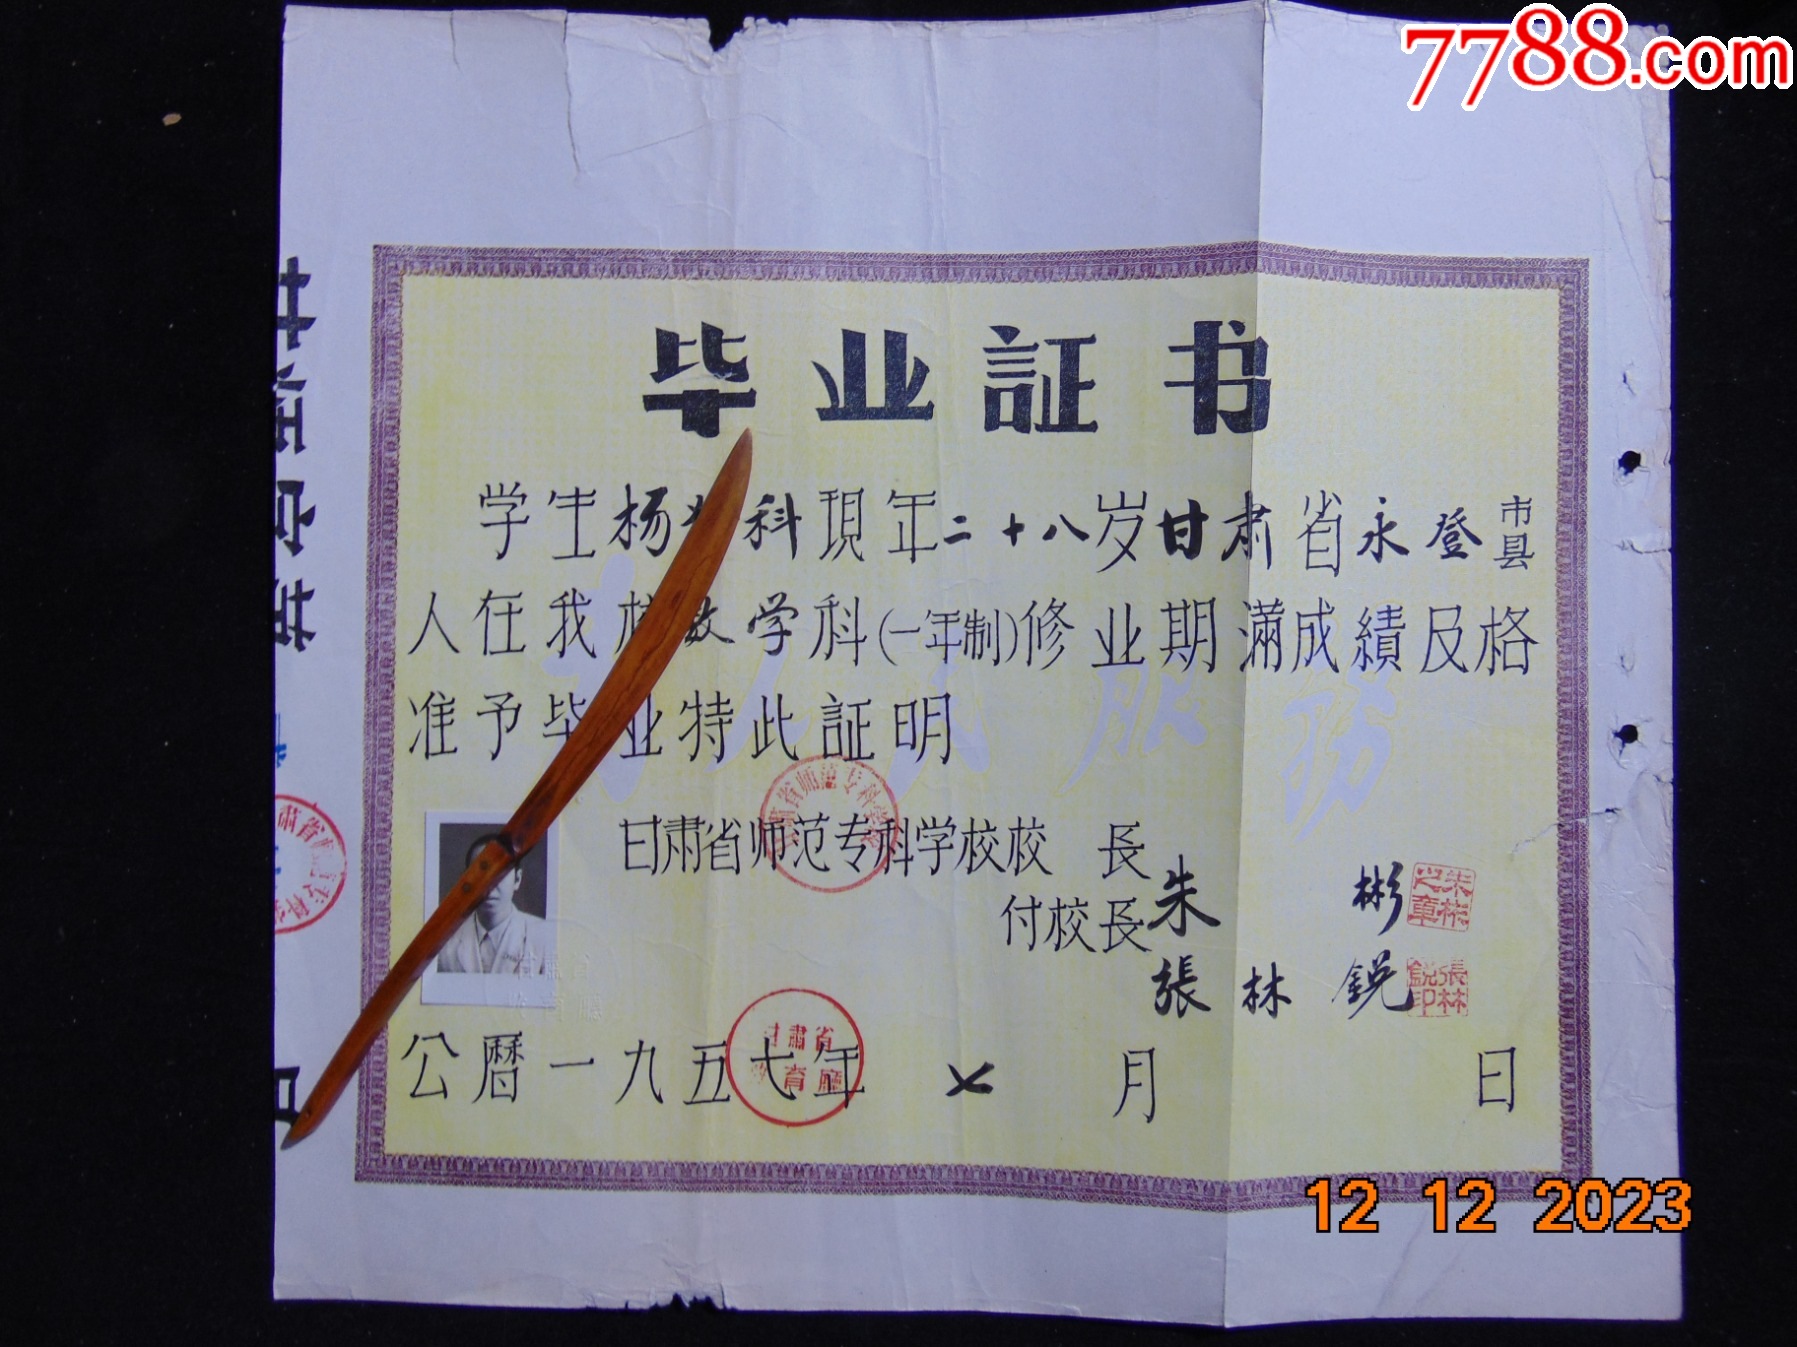 7788.com
毕业証书
学生杨 科現年二十八岁甘肃省永登市县
人在我校数学科(一年制)修业期滿成績及格
准予毕业特此証明
服務
甘肃省师范专科学校校 長 朱 彬
朱彬之章
付校長 張林鋭
張林鋭印
甘肅省教育廳
公曆一九五七年 七 月 日
12 12 2023